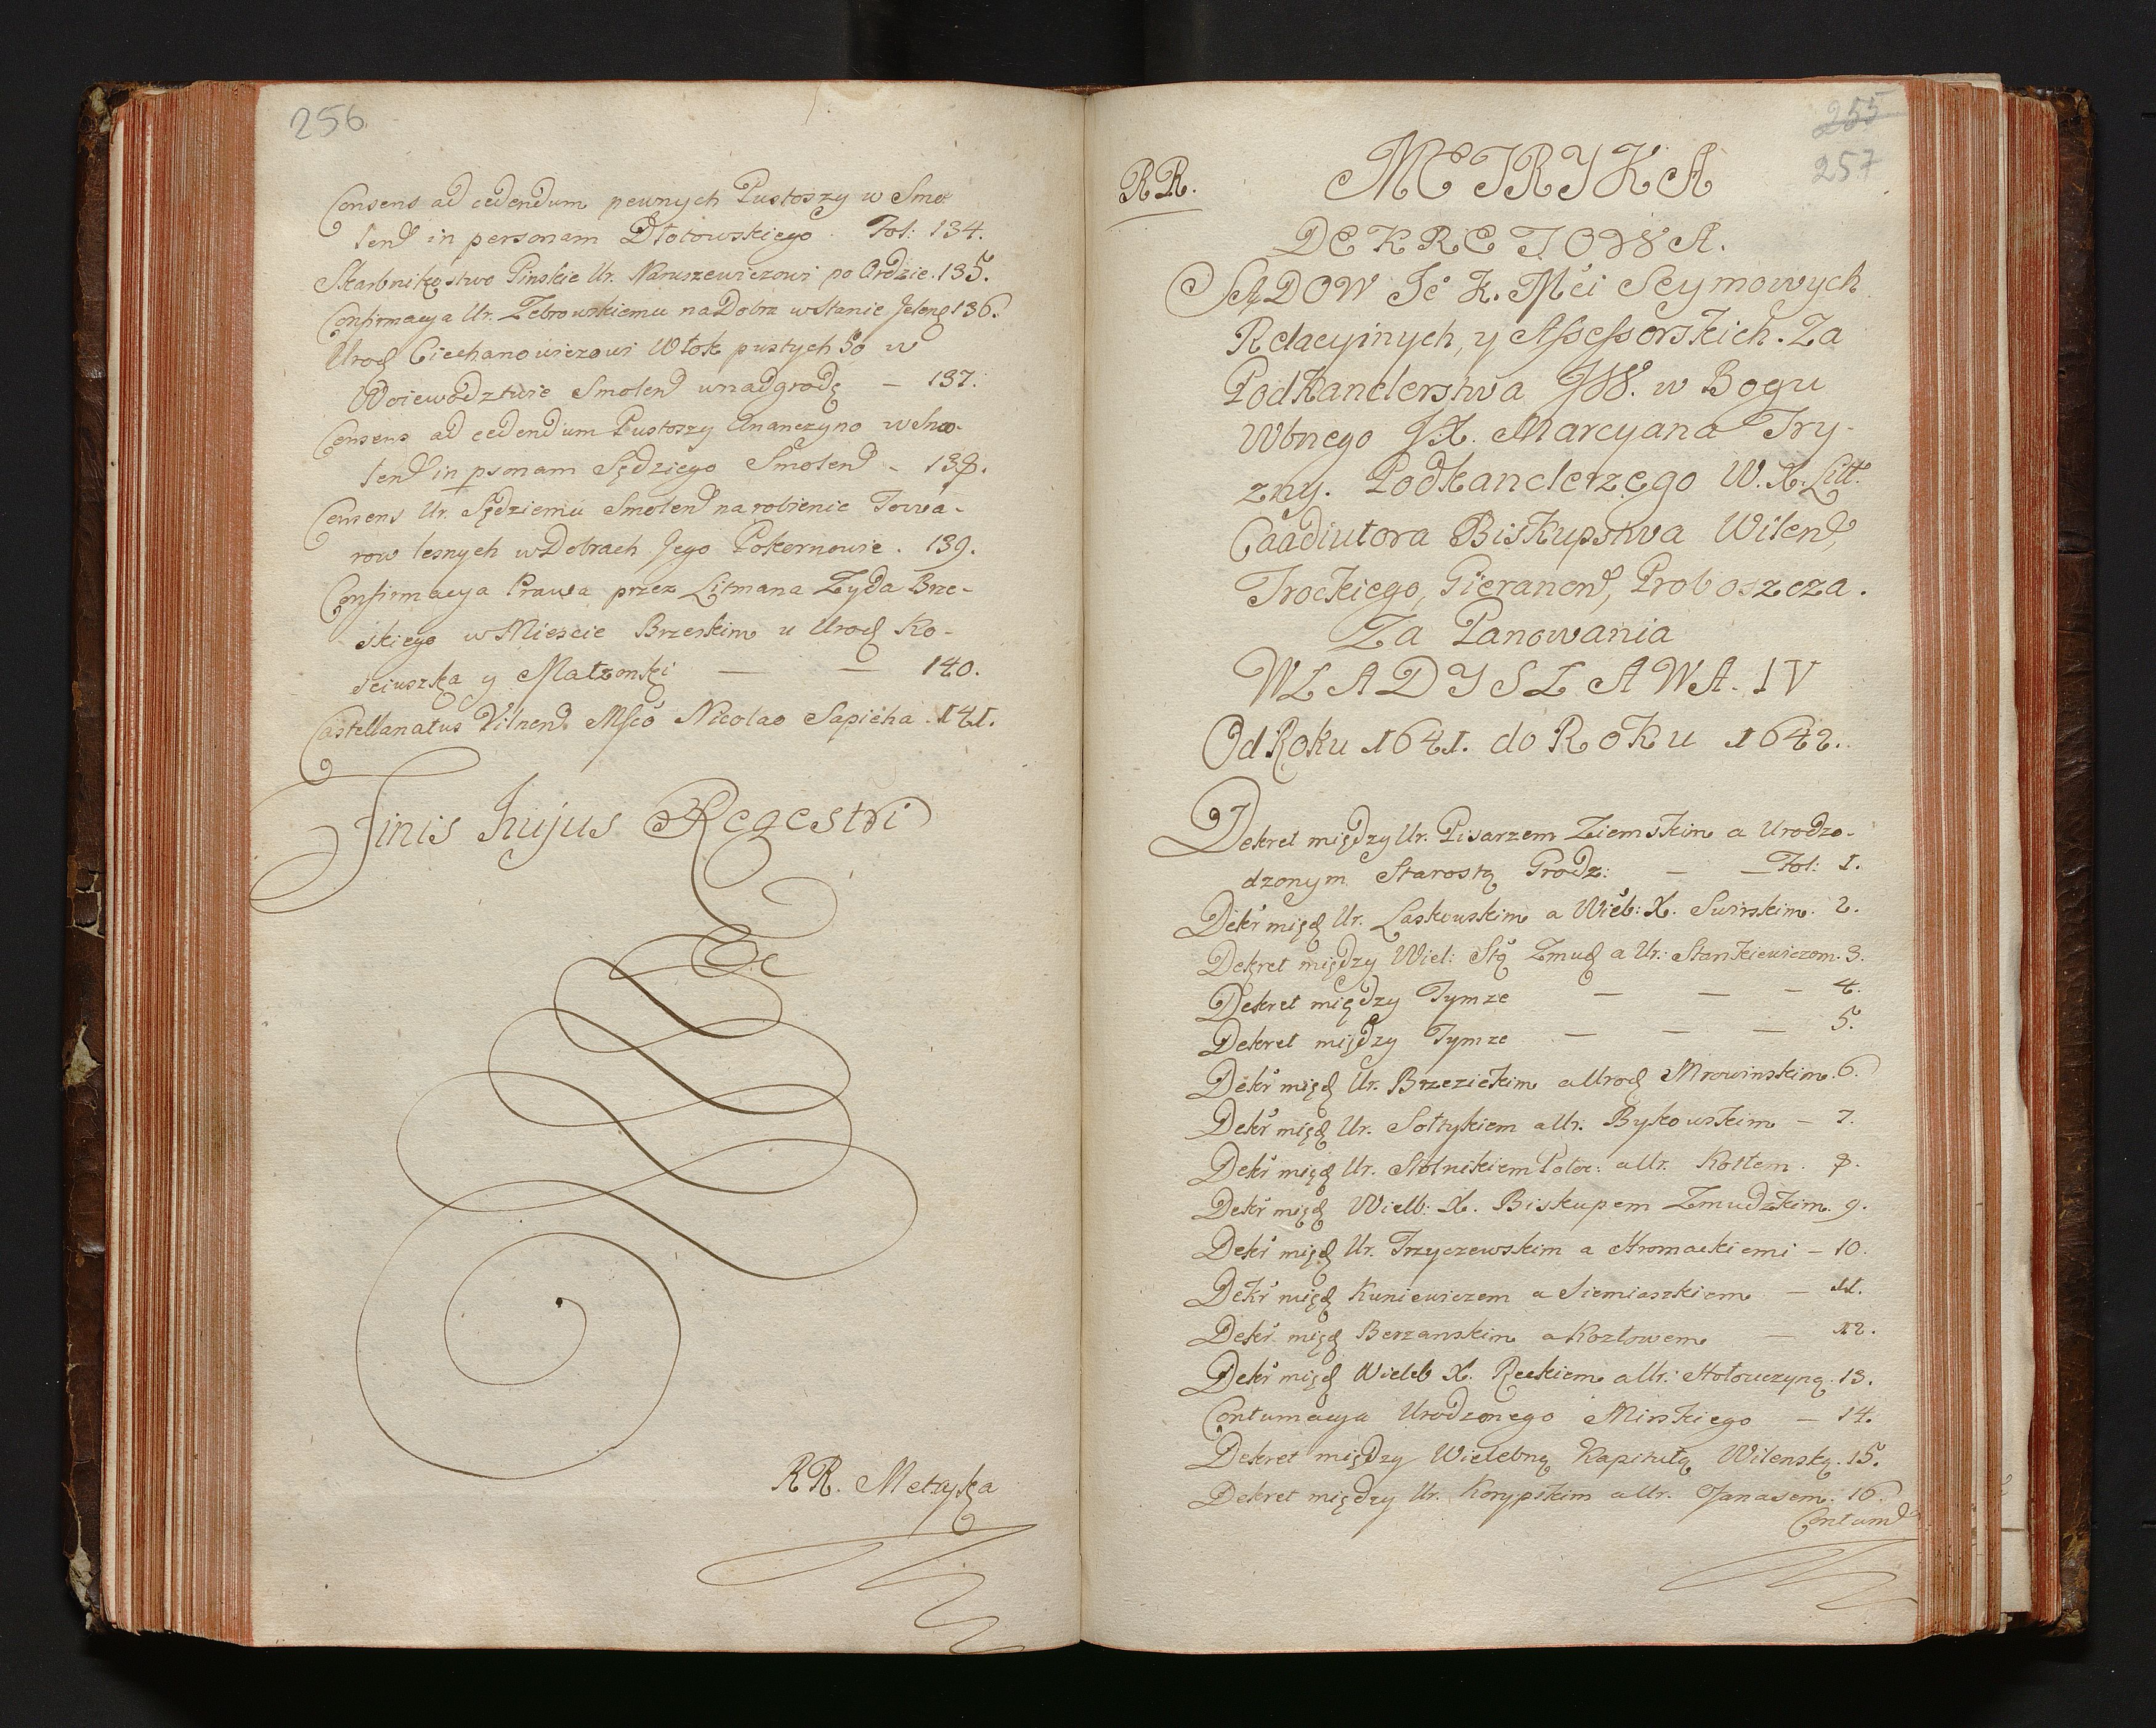 256
Consens ad cedendum pewnych Pustoszy w Smo
lend in personam Dłotowskiego. Fol: 134.
Skarbnikostwo Pinskie Ur. Naruszewiczowi po Ordzie. 135.
Confirmacya Ur. Zebrowskiemu na Dobra w Stanie Jeleng 136.
Urod Ciechanowiczowi Włok pustych 50 w
Woiewodztwie Smolend w nadgrodę – 137.
Consens ad cedendum Pustoszy Ananczyno w Smo-
lend in psonam Sędziego Smolend – 138.
Consens Ur. Sędziemu Smolend na robienie Towa-
row lesnych w Dobrach Jego Pokornowie. 139.
Confirmacya Prawa przez Litmana Zyda Brze-
skiego w Miescie Brzeskim u Urod Ko-
sciuszka y Małzonki — — 140.
Castellanatus Vilnend Mfco Nicolao Sapieha. 141.
Finis hujus Regestri
RR. Metryka
255
257
RR.
METRYKA
DEKRETOWA.
SĄDOW Je K. Mći Seymowych
Relacyinych, y Assessorskich. Za
Podkanclerstwa JW. w Bogu
Wbnego JX. Marcyana Try-
zny. Podkanclerzego W. X. Litt.
Caadiutora Biskupstwa Wilend,
Trockiego, Gieranend, Proboszcza.
Za Panowania
WŁADYSŁAWA. IV
Od Roku 1641. do Roku 1642.
Dekret między Ur. Pisarzem Ziemskim a Urodzo-
dzonym Starostą Grodz: — — Fol: 1.
Dekr międ Ur. Laskowskim a Wieb: X. Swirskim. 2.
Dekret między Wiel: Stą Zmud a Ur: Stankiewiczom. 3.
Dekret między Tymze — — – 4.
Dekret między Tymze — — — 5.
Dekr międ Ur. Brzezickim a Urod Mrowinskim. 6.
Dekr międ Ur. Sołtykiem a Ur. Bykowskim – 7.
Dekr międ Ur. Stolnikiem Połoc: a Ur. Kottem. 8.
Dekr międ Wielb: X. Biskupem Zmudzkim. 9.
Dekr międ Ur. Trzyczewskim a Hromackiemi – 10.
Dekr międ Kuniewiczem a Siemiaszkiem — 11.
Dekr międ Berzanskim a Kozłowem — 12.
Dekr międ Wieleb X. Reckiem a Ur. Hołowczyną. 13.
Contumacya Urodzonego Mirskiego — 14.
Dekret między Wielebną Kapitułą Wilenską. 15.
Dekret między Ur. Korypskim a Ur. Janasem. 16.
Contumd